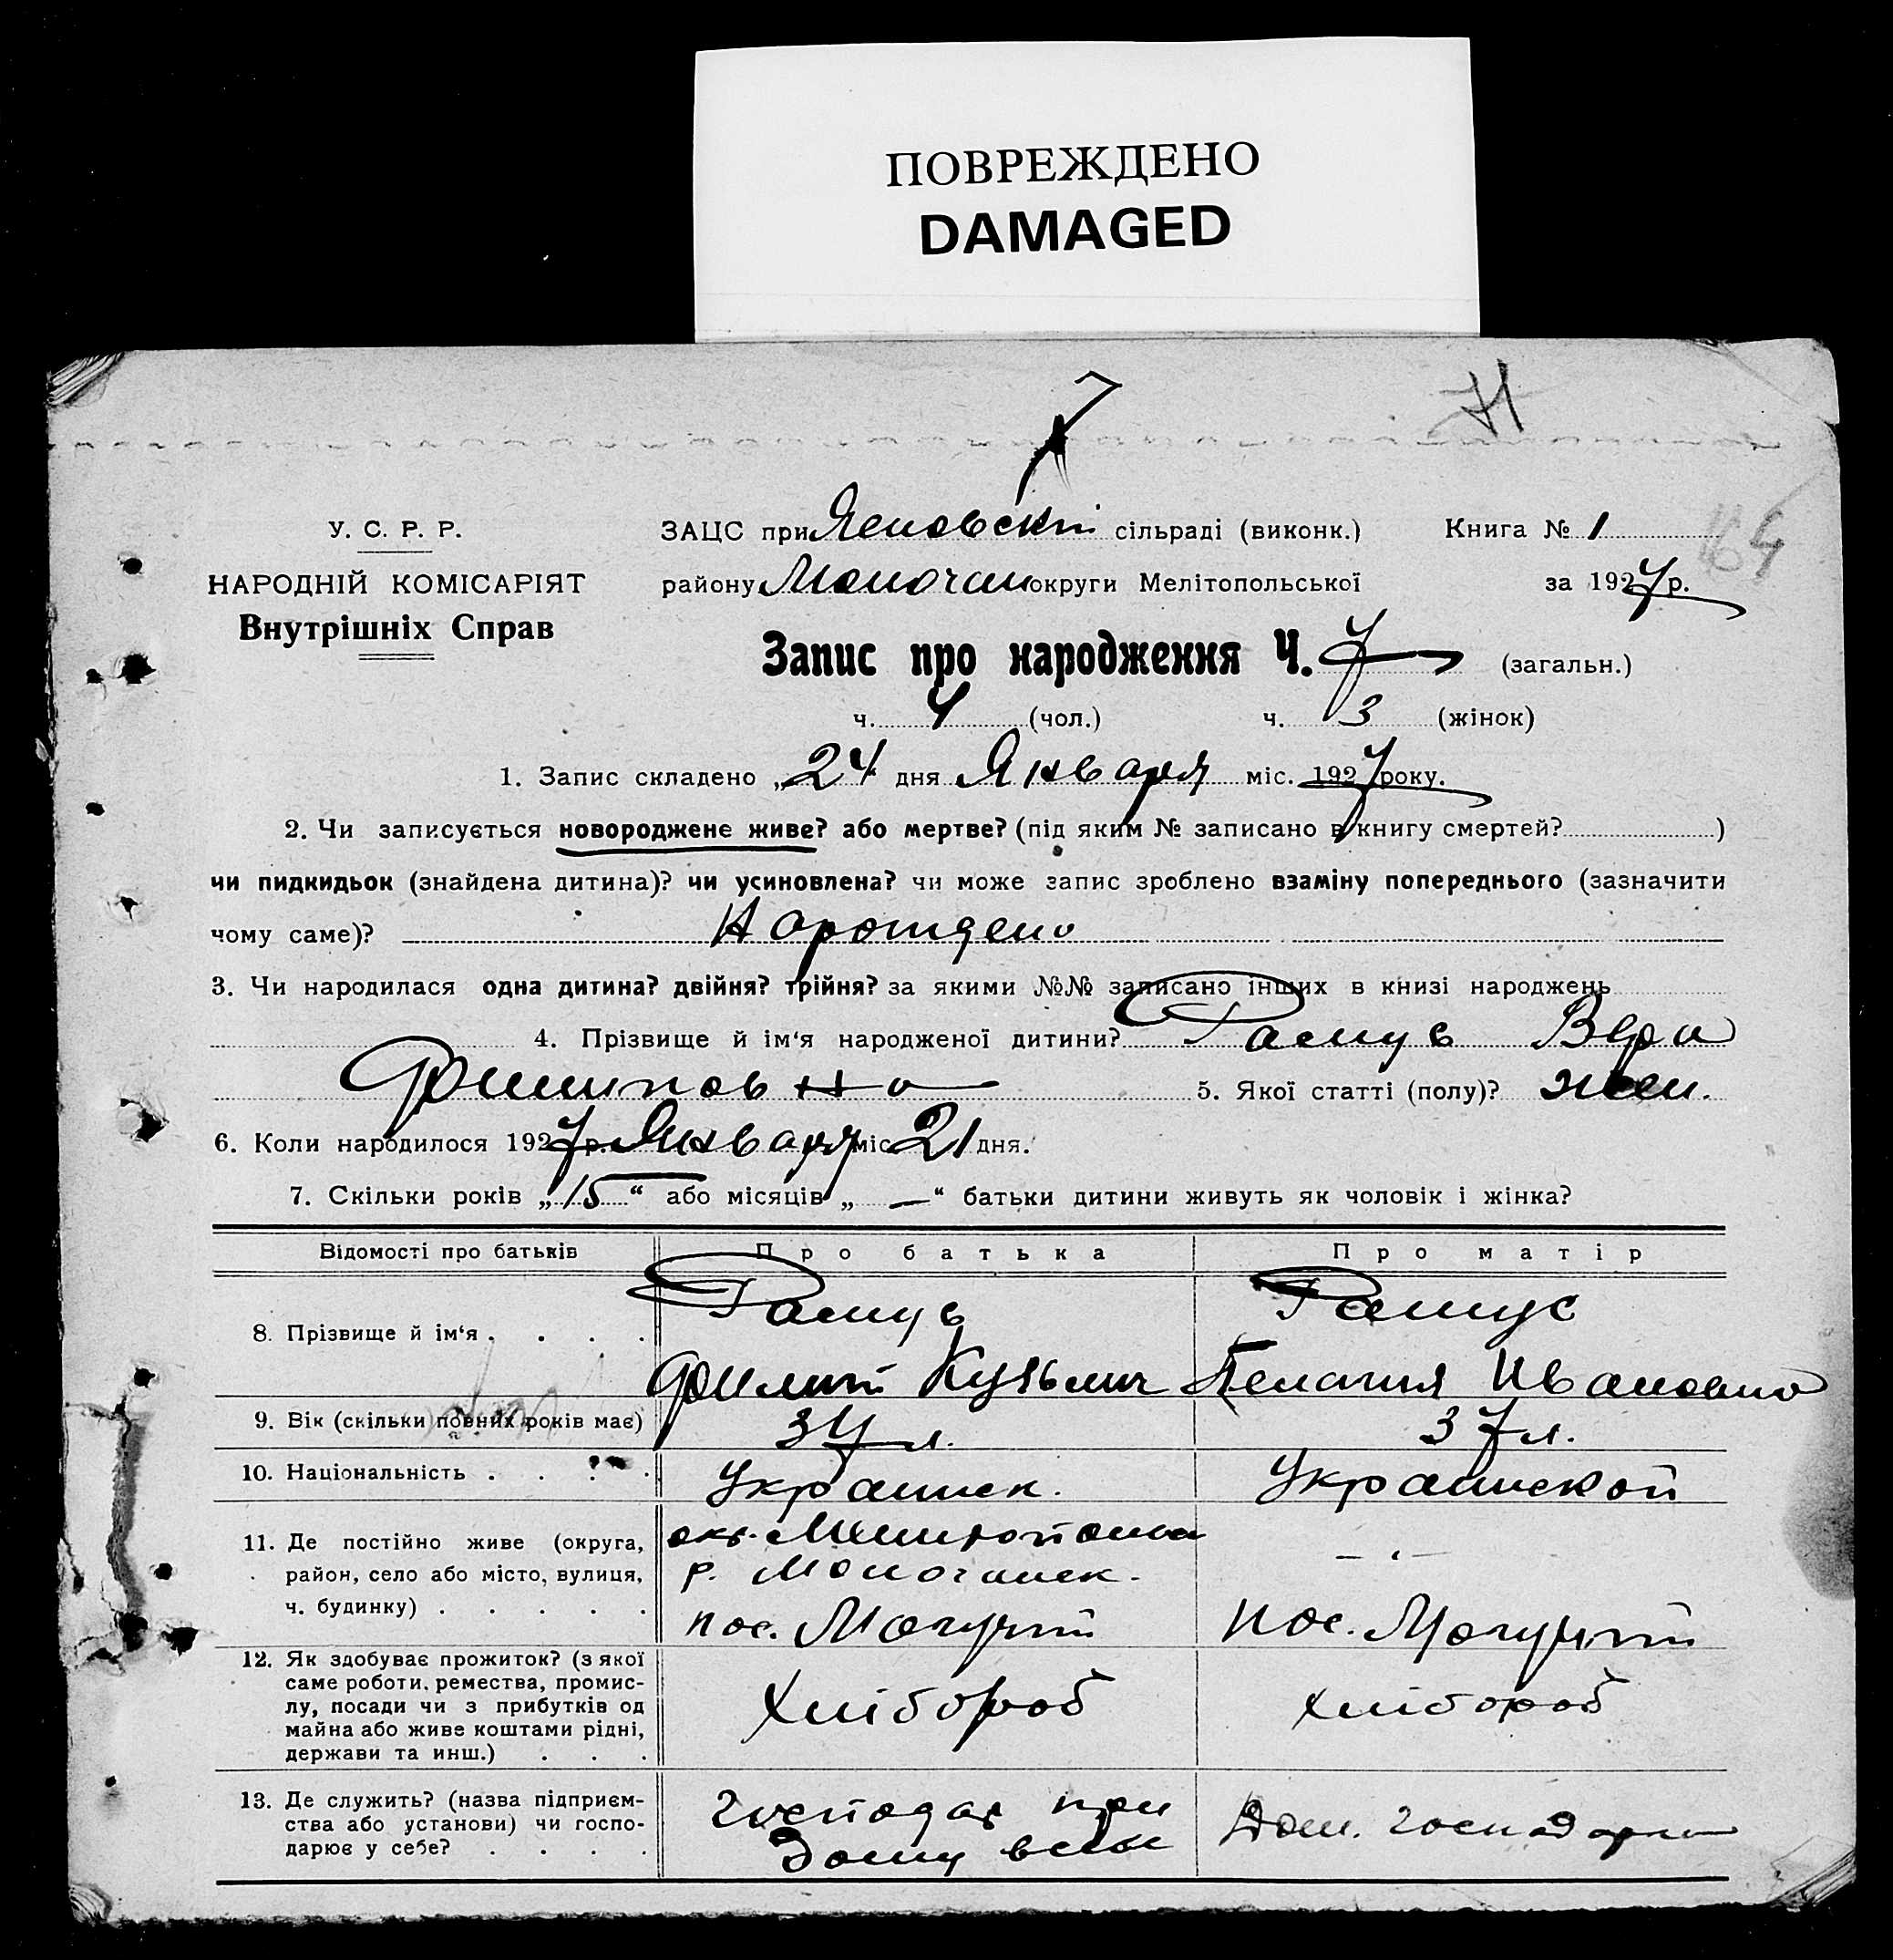 ПОВРЕЖДЕНО
DAMAGED
7
71
164
У. С. Р. Р.
НАРОДНІЙ КОМІСАРІЯТ
Внутрішніх Справ
ЗАЦС при Ясиновскій сільраді (виконк.) Книга № 1
району Молочан округи Мелітопольської за 1927 р.
Запис про народження Ч. 7 (загальн.)
ч. 4 (чол.) ч. 3 (жінок)
1. Запис складено „24 дня Января міс. 1927 року.
2. Чи записується новороджене живе? або мертве? (під яким № записано в книгу смертей? )
чи пидкидьок (знайдена дитина)? чи усиновлена? чи може запис зроблено взаміну попереднього (зазначити
чому саме)? Нарождено
3. Чи народилася одна дитина? двійня? трійня? за якими №№ записано інших в книзі народжень
4. Прізвище й ім'я народженої дитини? Рашус Вера
5. Якої статті (полу)? жен.
6. Коли народилося 1927 р. Января міс 21 дня.
7. Скільки років „15“ або місяців „—“ батьки дитини живуть як чоловік і жінка?
Відомості про батьків Про батька Про матір
8. Прізвище й ім'я . . . . Рашус Рашус
Кузьмич Пелагия Ивановна
9. Вік (скільки повних років має) 34 л. 37 л.
10. Національність . . . . Украинск. Украинской
11. Де постійно живе (округа, окр. Мелитопольск
район, село або місто, вулиця, р. Молочанск. — „ —
ч. будинку) . . . . . пос. пос.
12. Як здобуває прожиток? (з якої
саме роботи, ремества, промис-
лу, посади чи з прибутків од Хлібороб хлібороб
майна або живе коштами рідні,
держави та инш.) . . .
13. Де служить? (назва підприєм- господар при Дом. господарка
ства або установи) чи госпо- дому
дарює у себе? . . . .